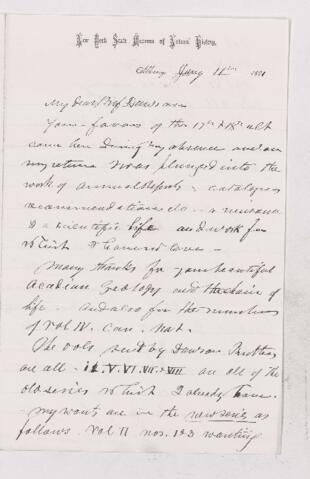 New York State Museum of Natural History.
Albany Jany 11th 1881
My dear Prof Dawson
Your favors of the 17th & 18th ult
came here during my absence and on
my return I was plunged into the
work of annual Reports, catalogues
recommendations etc. - a nuisance
to a scientific life and work for
which I
Many thanks for your beautiful
Acadian Geology and the chain of
life. and also for the numbers
of Vol IV. Can. Nat.
The vols sent by Dawson Brothers
are all - II. V. VI. VII. & VIII are all of the
old series which I already have.
My wants are in the new series as
follows. Vol II nos. 1 & 3 wanting